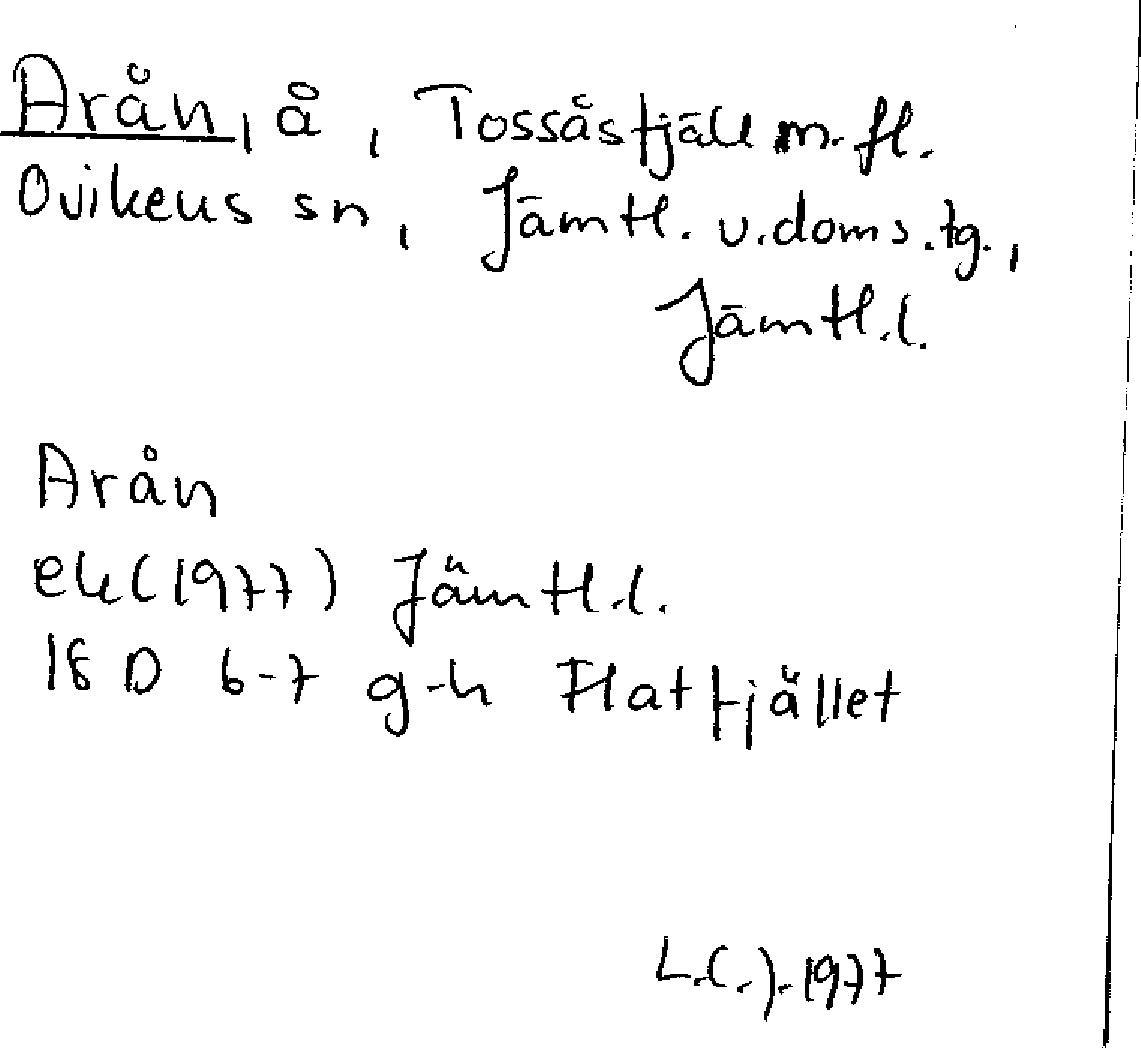 Arån, å, Tossåsfjäll m. fl.
Ovikens sn, Jämtl. v. doms. tg.,
Jämtl. l.
Arån
ek (1977) Jämtl. l.
18 D 6-7 g-h Flatfjället
L.C.J. 1977